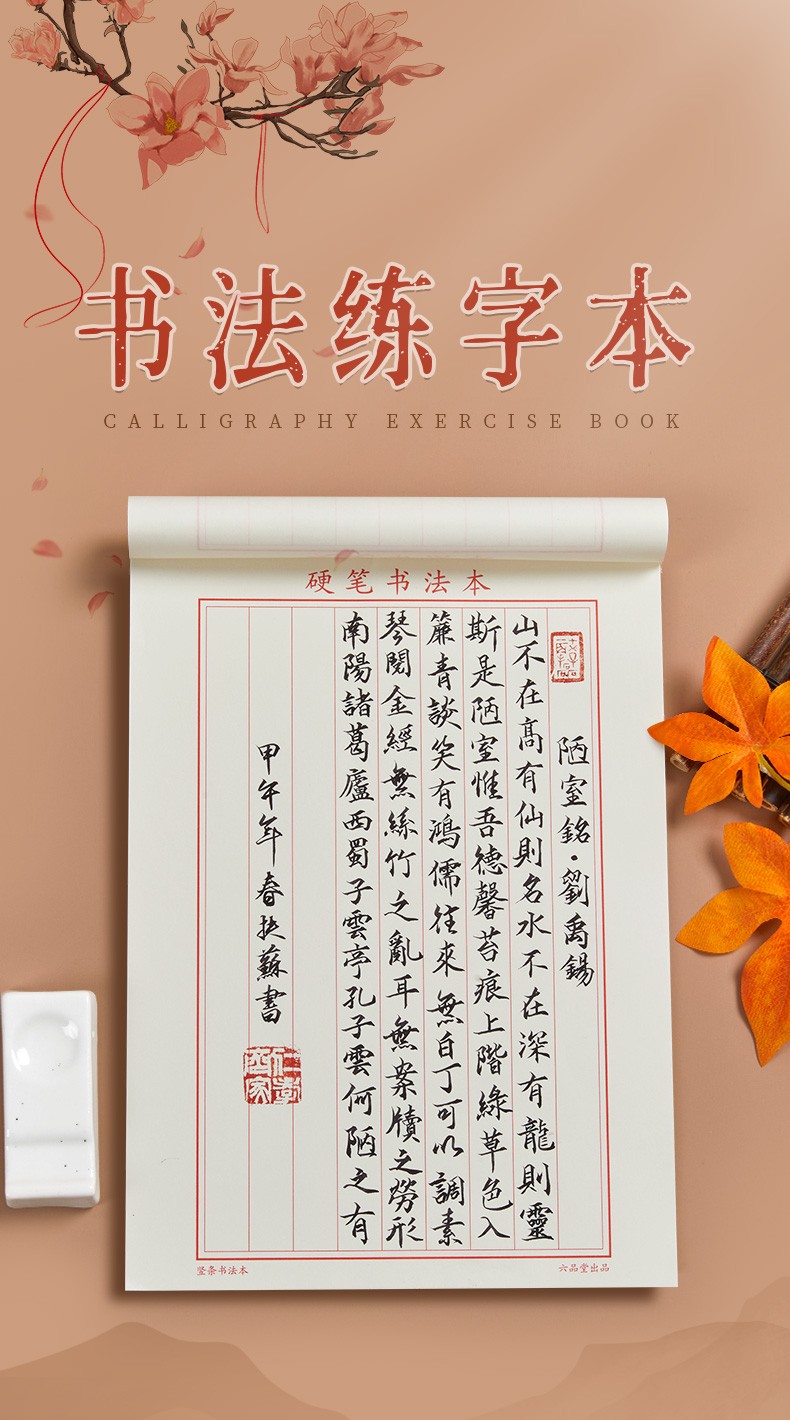 书法练字本
CALLIGRAPHY EXERCISE BOOK
硬笔书法本
陋室銘·劉禹錫
山不在高有仙則名水不在深有龍則靈
斯是陋室惟吾德馨苔痕上階綠草色入
簾青談笑有鴻儒往來無白丁可以調素
琴閱金經無絲竹之亂耳無案牘之勞形
南陽諸葛廬西蜀子雲亭孔子雲何陋之有
甲午年春扶蘇書
竖条书法本
六品堂出品